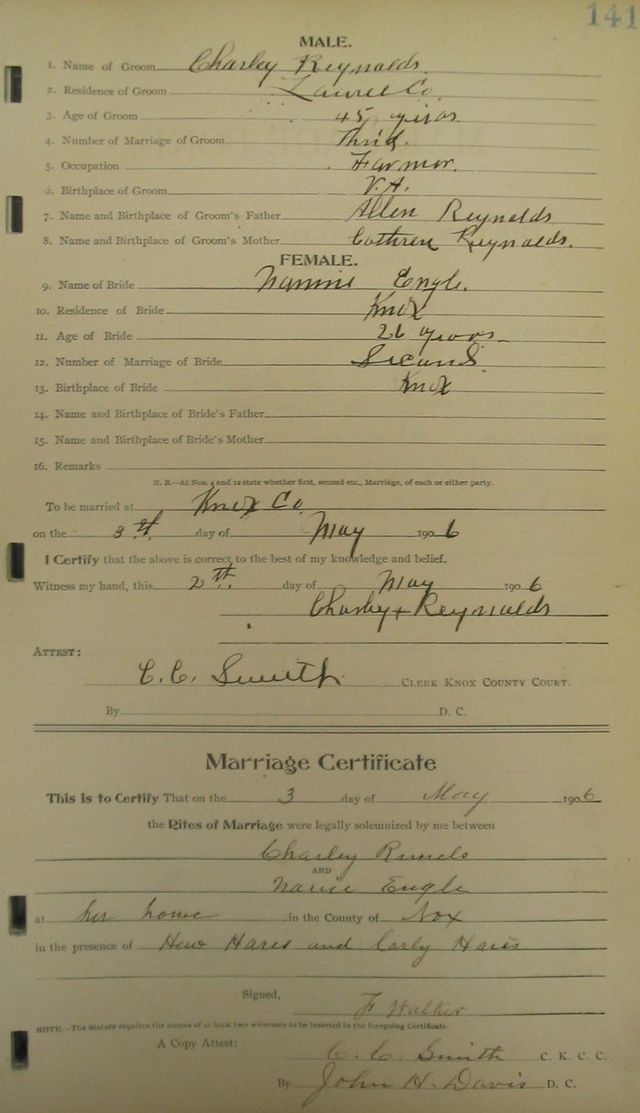 141
MALE.
1. Name of Groom Charley Reynalds.
2. Residence of Groom Laurel Co.
3. Age of Groom 45 years
4. Number of Marriage of Groom Third.
5. Occupation Farmer.
6. Birthplace of Groom V.A.
7. Name and Birthplace of Groom's Father Allen Reynolds
8. Name and Birthplace of Groom's Mother Cathren Reynalds.
FEMALE.
9. Name of Bride Nannie Engle.
10. Residence of Bride Knox
11. Age of Bride 26 years
12. Number of Marriage of Bride Second.
13. Birthplace of Bride Knox
14. Name and Birthplace of Bride's Father
15. Name and Birthplace of Bride's Mother
16. Remarks
N. B.—At Nos. 4 and 12 state whether first, second etc., Marriage, of each or either party.
To be married at Knox Co
on the 3th day of May 1906
I Certify that the above is correct to the best of my knowledge and belief.
Witness my hand, this 2th day of May 1906
Charley + Reynalds
ATTEST:
C. C. Smith CLERK KNOX COUNTY COURT.
By D. C.
Marriage Certificate
This is to Certify That on the 3 day of May 1906
the Rites of Marriage were legally solemnized by me between
Charley Runels
AND
Navie Engle
at her home in the County of Nox
in the presence of Hares and Carly Hares
Signed, F Walker
NOTE.—The Statute requires the names of at least two witnesses to be inserted in the foregoing Certificate
A Copy Attest: C. C. Smith C. K. C. C.
By John H. Davis D. C.